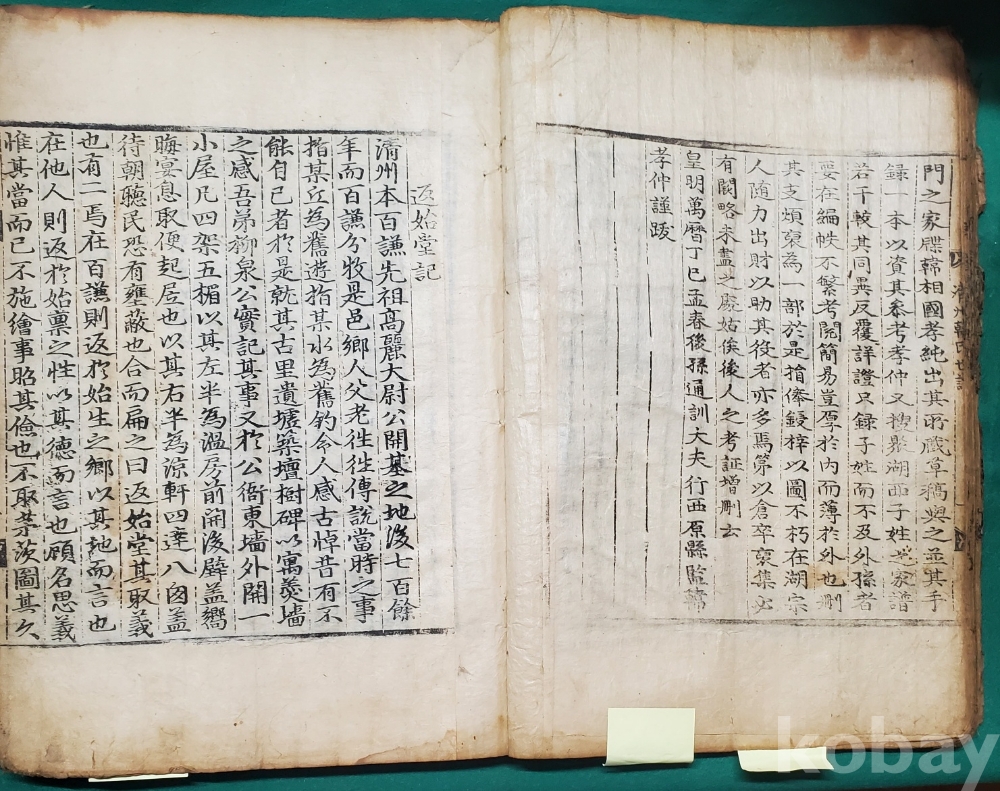 門之家牒韓相國孝純出其所藏草稿與之並其手
錄一本以資其參考孝仲又搜聚湖西子姓之家譜
若干較其同異反覆詳證只録子姓而不及外孫者
要在編帙不繁考閱簡易豈厚於內而薄於外也刪
其支煩裒為一部於是捐俸鋟梓以圖不朽在湖宗
人隨力出財以助其役者亦多焉第以倉卒裒集必
有闕略未盡之處姑俟後人之考証增刪云
皇明萬曆丁巳孟春後孫通訓大夫行西原縣監韓
孝仲謹跋
返始堂記
清州本百謙先祖高麗太尉公開基之地後七百餘
年而百謙分牧是邑鄉人父老徃徃傳說當時之事
指某丘為舊遊指某水為舊釣令人感古悼昔有不
能自已者於是就其古里遺墟築壇樹碑以寓羹墻
之感吾弟柳泉公實記其事又於公衙東墻外開一
小屋凡四架五楣以其左半為溫房前開後辟盖嚮
晦宴息取便起居也以其右半為涼軒四達八囪盖
待朝聽民恐有壅蔽也合而扁之曰返始堂其取義
也有二焉在百謙則返於始生之鄉以其地而言也
在他人則返於始禀之性以其德而言也顧名思義
惟其當而已不施繪事昭其儉也不取茅茨圖其久
清州韓氏世譜
kobay